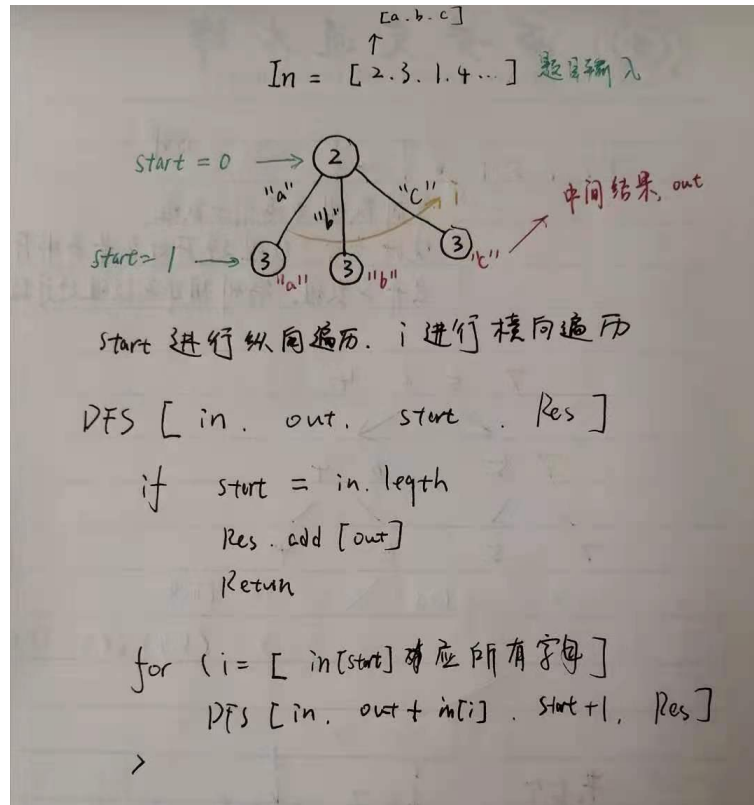 [a.b.c]
In = [2.3.1.4...] 题目输入
start = 0
2
"a" "b" "c" i
中间结果, out
start = 1
3 "a" 3 "b" 3 "c"
start 进行纵向遍历. i 进行横向遍历
DFS [in. out. start. Res]
if start = in.legth
Res.add [out]
Retun
for (i = [in[start] 对应所有字母]
DFS [in. out + in[i]. start+1. Res]
>